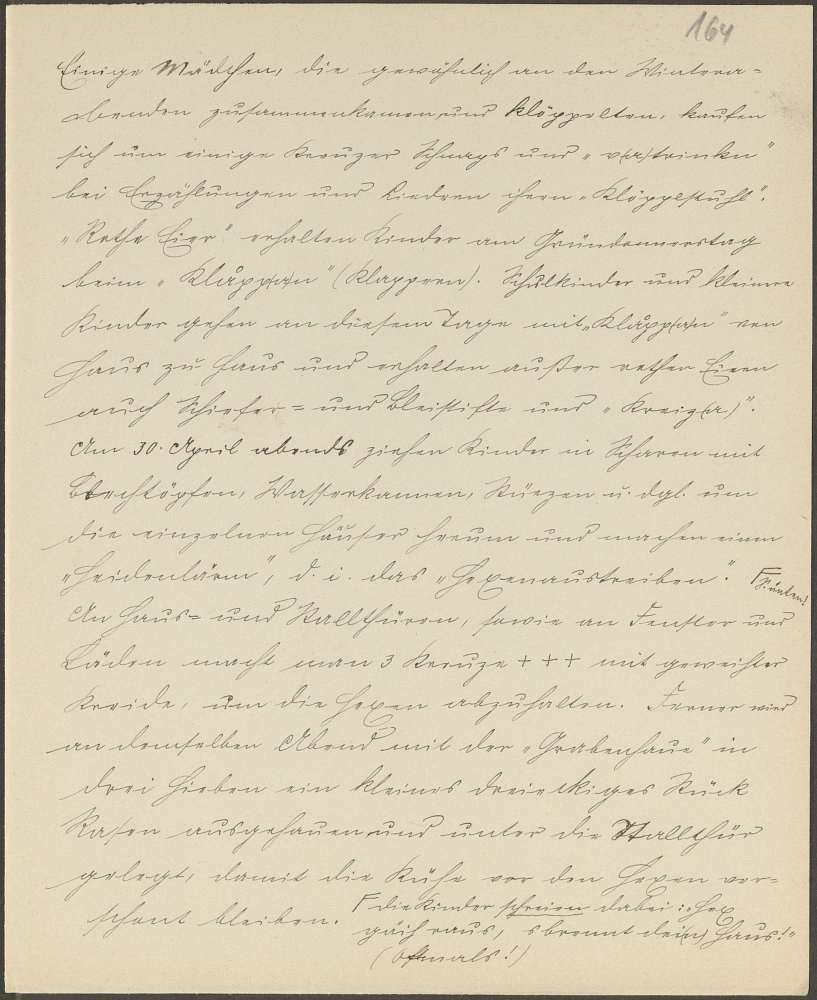 164
Einige Mädchen, die gewöhnlich an den Wintera-
benden zusammenkamen, und klöppelten, kaufen
sich um einige Kreuzer Schnaps und „v(er)trinkn"
bei Erzählungen und Liedern ihern „Klöpplstuhl".
„Rothe Eier" erhalten Kinder am Gründonnerstag
beim „Klåpp(a)n" (Klappern). Schulkinder und kleinere
Kinder gehen an diesem Tage mit „Klåpp(a)n" von
Haus zu Haus und erhalten außer rothen Eiern
auch Schiefer- und Bleistifte und „Kreiz(a)".
Am 30. April abends ziehen Kinder in Scharen mit
Blechtöpfen, Wasserkannen, Stürzen u. dgl. um
die einzelnen Häuser herum und machen einen
„Heidenlärm", d. i. das „Hexenaustreiben". Γ
An Haus- und Stallthüren, sowie an Fenster und
Läden macht man 3 Kreuze + + + mit geweihter
Kreide, um die Hexen abzuhalten. Ferner wird
an demselben Abend mit der „Grabenhaue" in
drei Hieben ein kleines dreieckiges Stück
Rasen ausgehauen, und unter die Stallthür
gelegt, damit die Kühe vor den Hexen ver-
schont bleiben. Γ die Kinder schreien dabei: „Hex
gäih raus, s brennt dei(n) Haus!"
(Oftmals!)